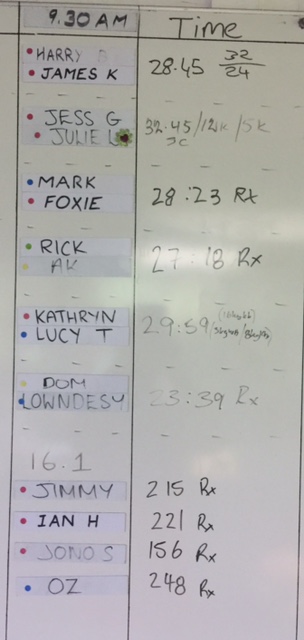 9.30 AM Time
HARRY B
JAMES K 28.45 32/24
JESS G
JULIE L 32.45/12k/5k
MARK
FOXIE 28:23 Rx
RICK
AK 27:18 Rx
KATHRYN
LUCY T 29:59
DOM
LOWNDESY 23:39 Rx
16.1
JIMMY 215 Rx
IAN H 221 Rx
JONO S 156 Rx
OZ 248 Rx